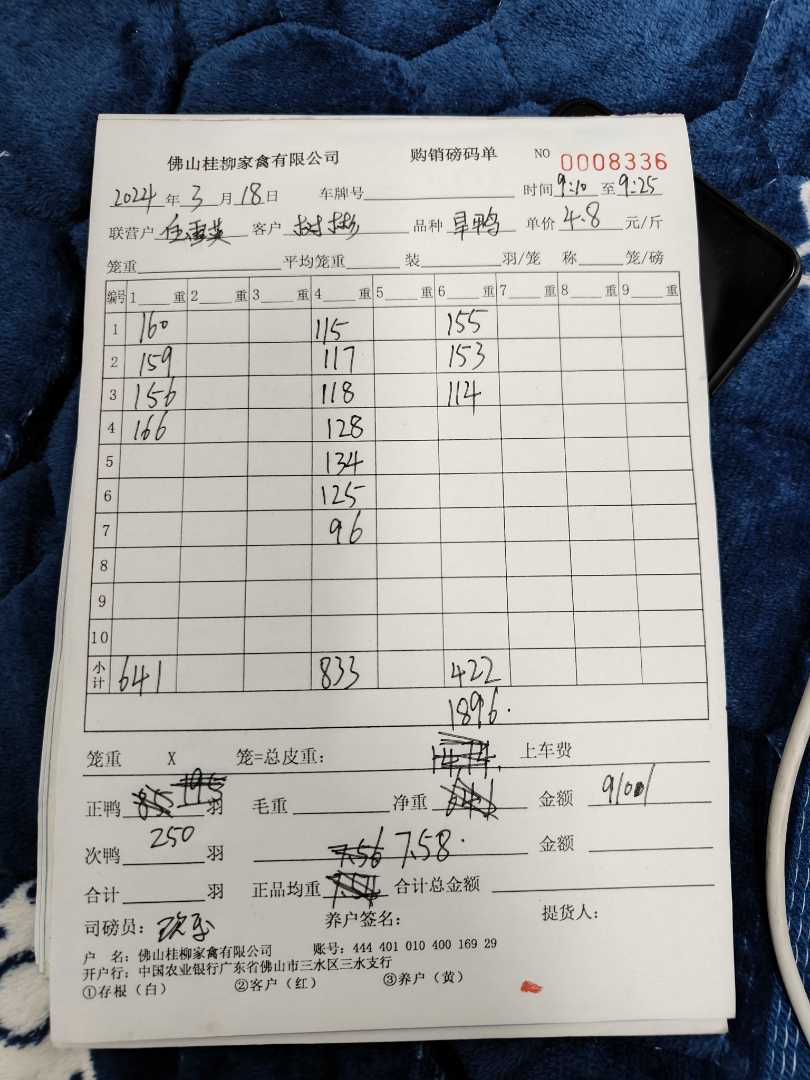 佛山桂柳家禽有限公司 购销磅码单 NO 0008336
2024年3月18日 车牌号 时间9:10至9:25
联营户 客户 树彬 品种 旱鸭 单价4.8元/斤
笼重 平均笼重 装 羽/笼 称 笼/磅
编号 1 重 2 重 3 重 4 重 5 重 6 重 7 重 8 重 9 重
1 160 115 155
2 159 117 153
3 156 118 114
4 166 128
5 134
6 125
7 96
8
9
10
小计 641 833 422
1896.
笼重 X 笼=总皮重: 1474. 上车费
正鸭 85 115 羽 毛重 净重 641 金额 9101
次鸭 250 羽 7.56 7.58. 金额
合计 羽 正品均重 合计总金额
司磅员: 养户签名: 提货人:
户 名: 佛山桂柳家禽有限公司 账号: 444 401 010 400 169 29
开户行: 中国农业银行广东省佛山市三水区三水支行
①存根(白) ②客户(红) ③养户(黄)